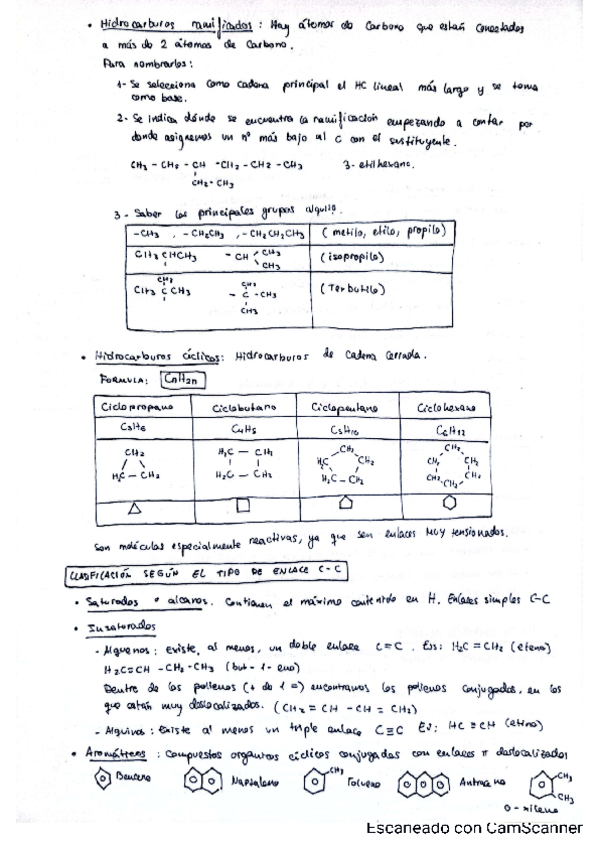 • Hidrocarburos ramificados: Hay átomos de Carbono que están conectados
a más de 2 átomos de Carbono.
Para nombrarlos:
1- Se selecciona como cadena principal el HC lineal más largo y se toma
como base.
2- Se indica dónde se encuentra la ramificación empezando a contar por
donde asignemos un nº más bajo al C con el sustituyente.
CH3 - CH2 - CH - CH2 - CH2 - CH3    3-etilhexano.
CH2-CH3
3- Saber los principales grupos alquilo.
-CH3 , -CH2CH3 , -CH2CH2CH3    (metilo, etilo, propilo)
CH3CHCH3    - CH CH3 CH3    (isopropilo)
CH3
CH3 C CH3    CH3 - C - CH3 CH3    (Terbutilo)
• Hidrocarburos cíclicos: Hidrocarburos de cadena cerrada.
FORMULA: CnH2n
Ciclopropano    Ciclobutano    Ciclopentano    Ciclohexano
C3H6    C4H8    C5H10    C6H12
CH2    H2C - CH2    CH2    CH2
H2C    CH2    CH2    CH2
H2C - CH2    H2C - CH2    H2C - CH2    CH2    CH2
CH2
Son moléculas especialmente reactivas, ya que son enlaces MUY tensionados.
CLASIFICACIÓN SEGÚN EL TIPO DE ENLACE C-C
• Saturados o alcanos. Contienen el máximo contenido en H. Enlaces simples C-C
• Insaturados
- Alquenos: existe, al menos, un doble enlace C=C. Ejs: H2C=CH2 (eteno)
H2C=CH-CH2-CH3 (but-1-eno)
Dentro de los polienos (+ de 1 =) encontramos los polienos conjugados, en los
que están muy deslocalizados. (CH2 = CH - CH = CH2)
- Alquinos: Existe al menos un triple enlace C≡C Ej: HC≡CH (etino)
• Aromáticos: compuestos orgánicos cíclicos conjugados con enlaces π deslocalizados
Benceno    Naftaleno    CH3 Tolueno    Antraceno    CH3
CH3
o-xileno
Escaneado con CamScanner